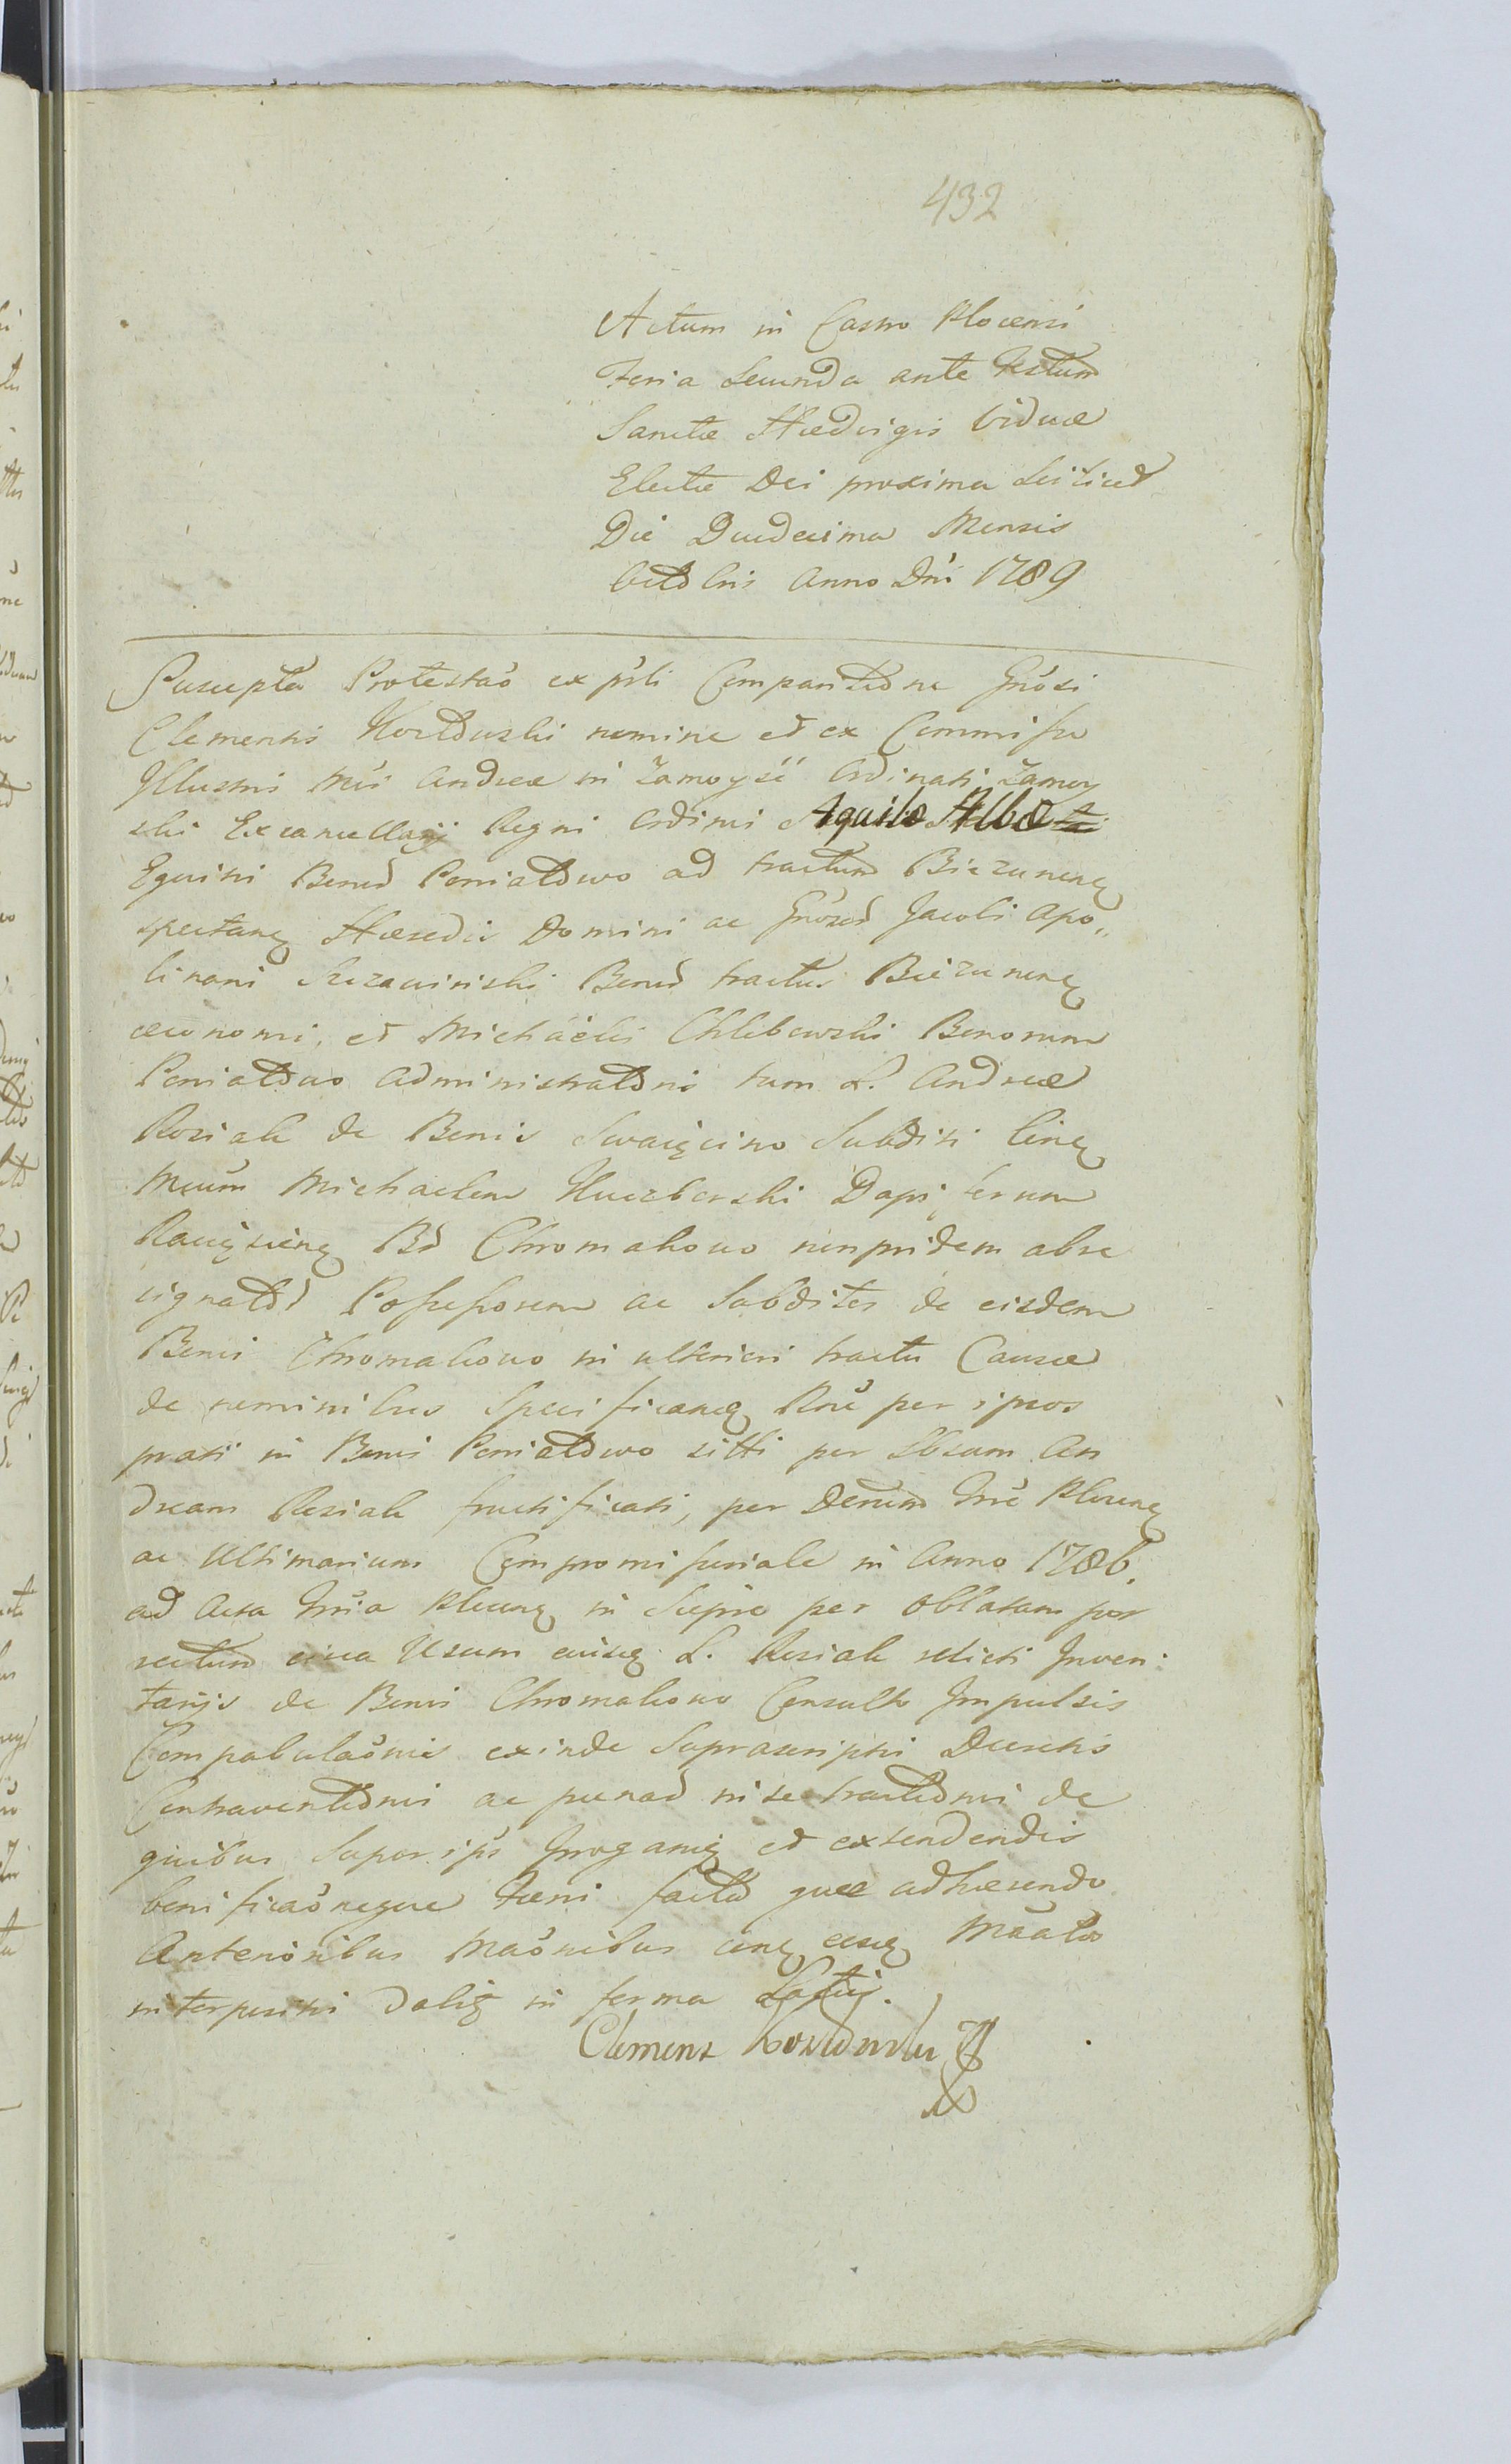 432
Actum in Castro Plocensi
Feria Secunda ante Festum
Sanctæ Hædvigis Viduæ
Electæ Dei proxima Scilicet
Die Duodecima Mensis
Octobris Anno Dni 1789
Suscepta Protestao ex psli Comparitione Gnosi
Clementis nomine et ex Commisso
Illustris Mci Andreæ in Zamoyść Ordinati Zamoy
ski Excancellarij Regni Ordinis Aquilæ Albæ
Equitis Bonor Poniatowo ad tractum Biezunens
spectan Hæredis Domini ac Gnosor Jacobi Apo„
linaris Szczawinski Bonor tractus Biezunens
œconomi, et Michäelis Chlebowski Bonorum
Poniatowo Administratoris tum L. Andreæ
Roziak de Bonis Swaięcino Subditi Cin
Mcum Michaelem Dapiferum
Raciązien Br Chromakowo nonpridem abre
signator Possessorem ac Subditos de eisdem
Bonis Chromakowo in ulteriori tractu Causæ
de nominibus Specifican Rne per ipsos
prati in Bonis Poniatowo siti per Lbsum An
dream Roziak fructificati, per Dectum Gnre Plocen
ac Ultimarium Compromissoriale in Anno 1786.
ad Acta Gnria Plocen in Scepre per Oblatam por
rectum circa Usum eiusq L. Roziak relicti Inven:
tarijs de Bonis Chromakowo Consulto Impulsis
Compabulaonis exinde Suprascripti Decreti
Contraventionis ac pœnar in se tractionis de
quibus Super ips Irrogan et extendendis
bonificaoneque Fœni factæ quæ adhærendo
Anterioribus Maonibus cin eosq Mœata
interpositis Dali in forma Latiss.
Clemens